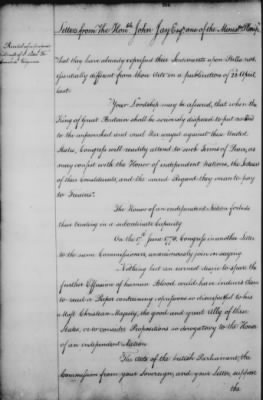 Letters from The Honble John Jay Esqr one of the Minist Plenip
that they have already expressed their Sentiments upon Bills not
essentially different from those Acts in a publication of 22 April
last.
Your Lordship may be assured, that when the
King of Great Britain shall be seriously disposed to put an End
to the unprovoked and cruel War waged against these United
States, Congress will readily attend to such Terms of Peace, as
may consist with the Honor of independent Nations, the Interest
of their Constituents, and the sacred Regard they mean to pay
to Treaties.
The Honor of an independent Nation forbids
their treating in a subordinate Capacity
On the 17th June 1778, Congress in another Letter
to the same Commissioners, unanimously join in saying
Nothing but an earnest desire to spare the
further Effusion of human Blood could have induced them
to read a Paper containing expressions so disrespectful to his
Most Christian Majesty, the good and great Ally of these
States, or to consider Propositions so derogatory to the Honor
of an independent Nation
The Acts of the british Parliament, the
Commission from your Sovereign, and your Letter, suppose
the